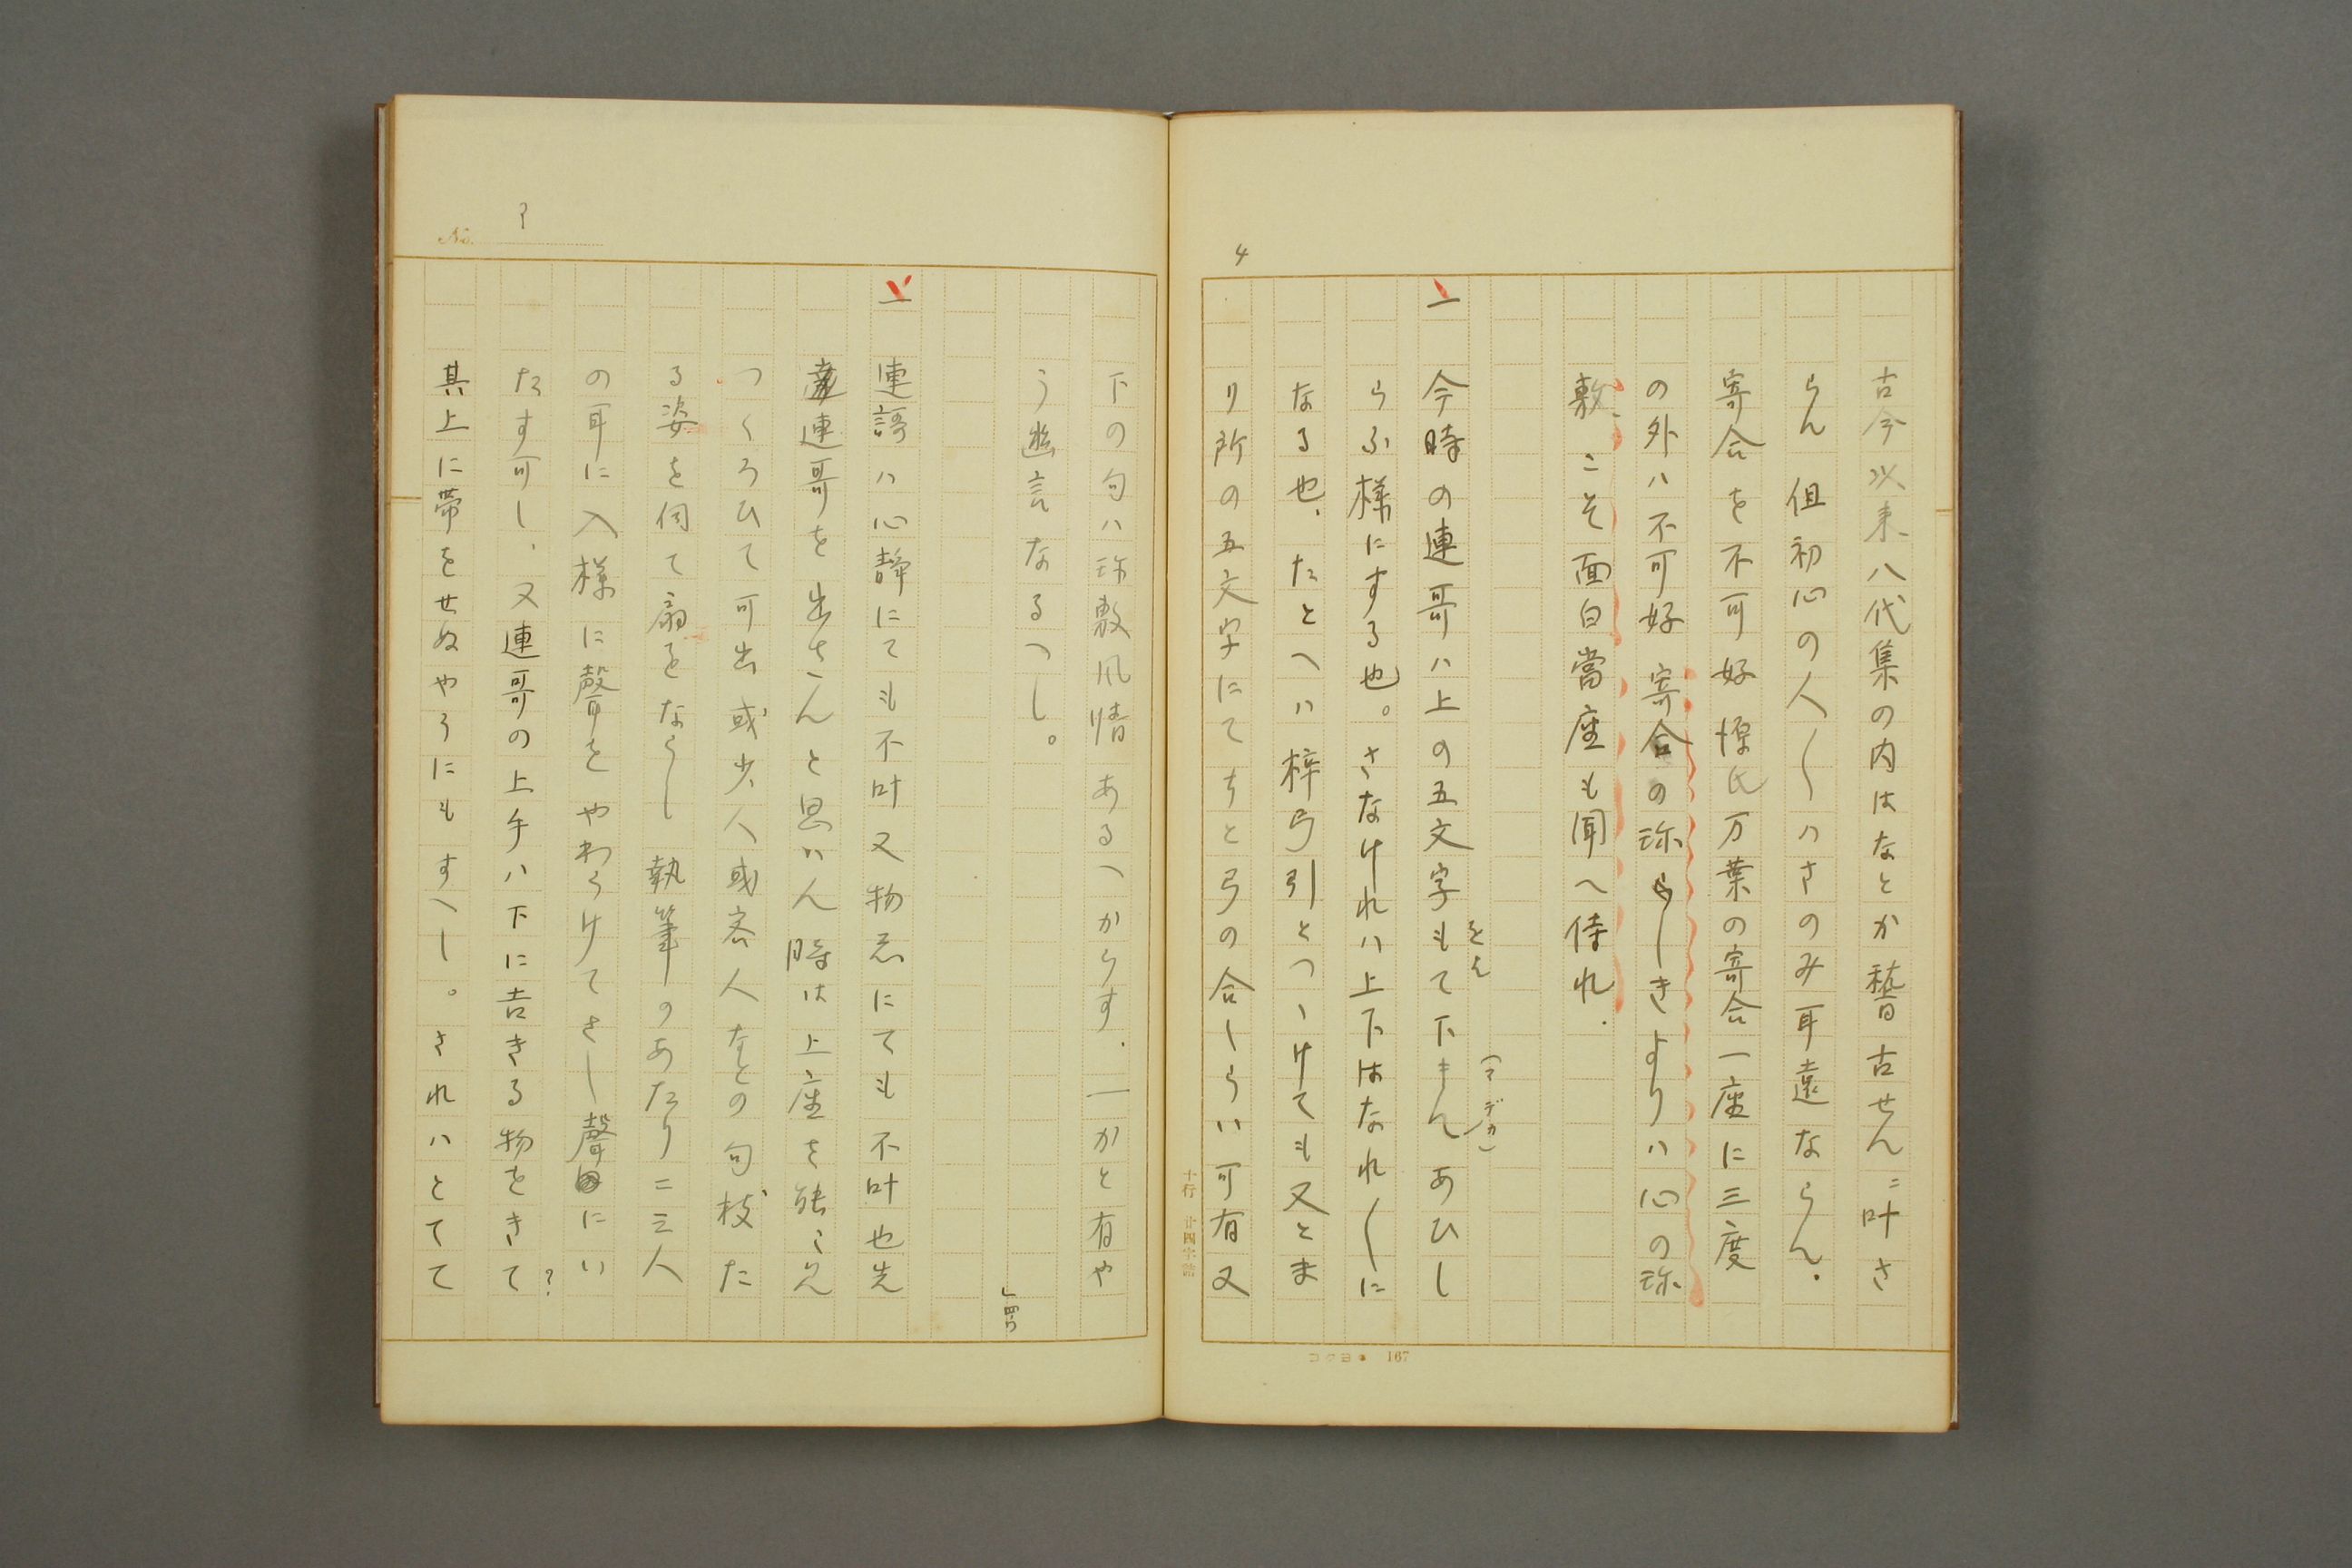 4
古今以来八代集の内はなとか稽古せんニ叶さ
らん 但初心の人〱ハさのみ耳遠ならん.
寄合を不可好 源氏万葉の寄合一座に三度
の外ハ不可好 寄合の珎らしきよりハ心の珎
敷こそ面白當座も聞へ侍れ.
一 今時の連哥ハ上の五文字もて下まてあひし
をは
(マデカ)
らふ様にする也。さなけれハ上下はなれ〱に
なる也、たとへハ梓弓引とつゝけても又とま
り所の五文字にてちと弓の合しらい可有又
十行 廿四字詰
コクヨ 167
No.
下の句ハ珎敷風情あるへからす.一かと有や
う遊言なるへし。
」四ウ
一 連謌ハ心静にても不叶又物忩にても不叶也先
連哥を出さんと思ハん時は上座を能〻見
つくろひて可出或少人或客人なとの句枝た
る姿を伺て扇をならし 執筆のあたりニ三人
の耳に入様に聲をやわらけてさし聲にい
たす可し、又連哥の上手ハ下に吉きる物をきて
?
其上に帯をせぬやうにもすへし。されハとてて